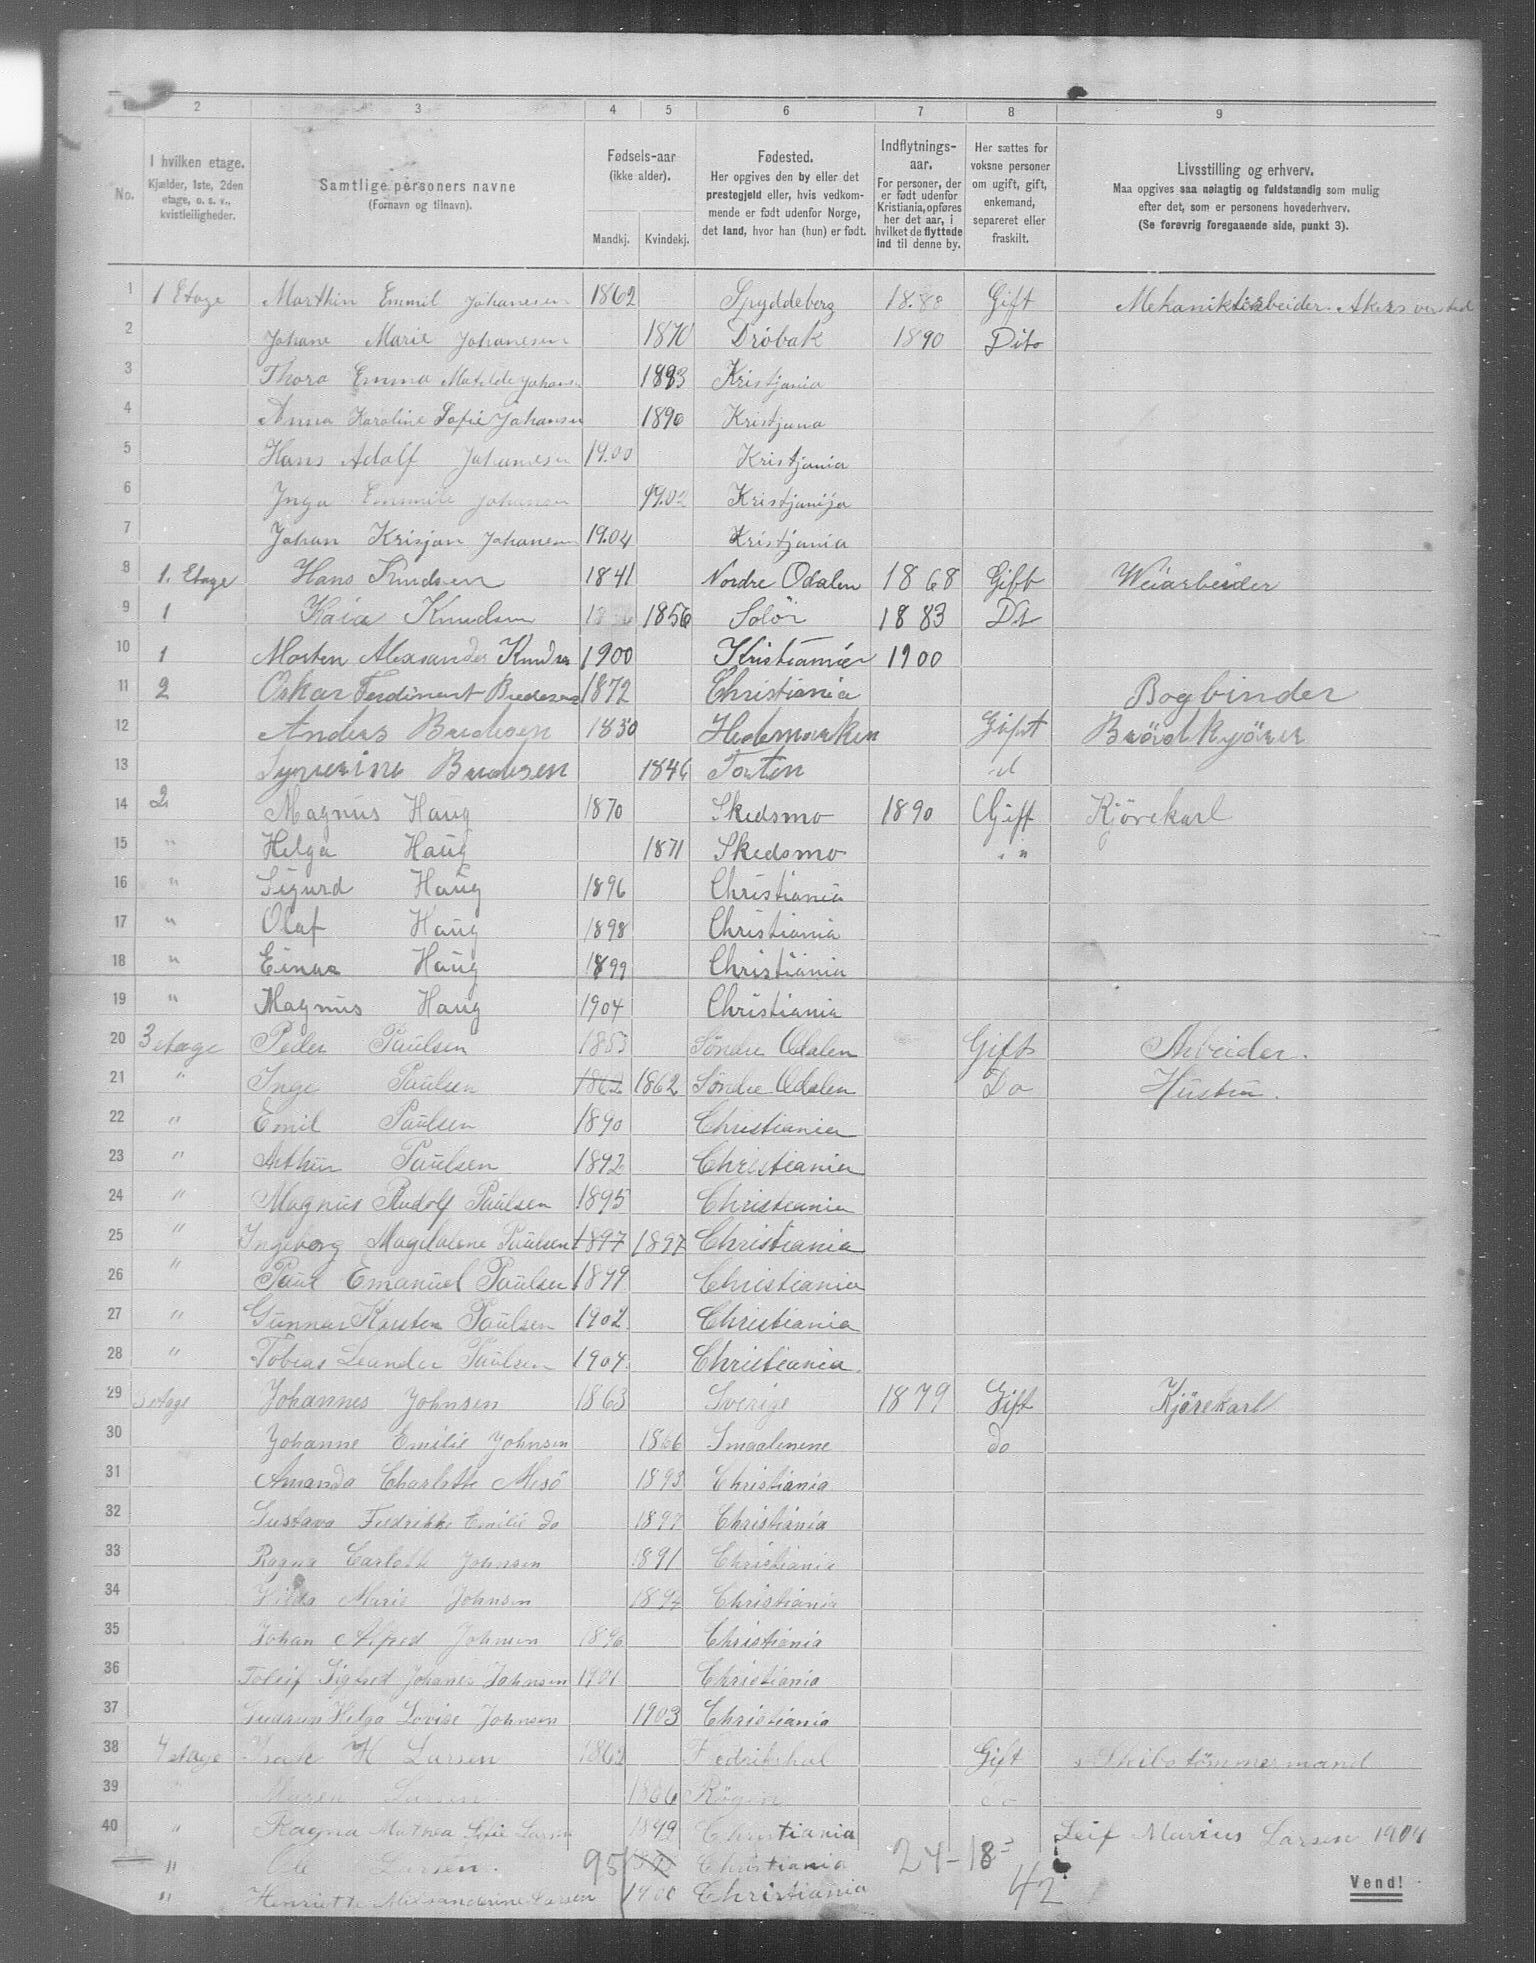 1 2 3 4 5 6 7 8 9
No.
I hvilken etage.
Kjælder, 1ste, 2den
etage, o. s. v.,
kvistleiligheder.
Samtlige personers navne
(Fornavn og tilnavn).
Fødsels-aar
(ikke alder).
Mandkj. Kvindekj.
Fødested.
Her opgives den by eller det
prestegjeld eller, hvis vedkom-
mende er født udenfor Norge,
det land, hvor han (hun) er født.
Indflytnings-
aar.
For personer, der
er født udenfor
Kristiania, opføres
her det aar, i
hvilket de flyttede
ind til denne by.
Her sættes for
voksne personer
om ugift, gift,
enkemand,
separeret eller
fraskilt.
Livsstilling og erhverv.
Maa opgives saa nøiagtig og fuldstændig som mulig
efter det, som er personens hovederhverv.
(Se forøvrig foregaaende side, punkt 3).
1 1 Etage Marthin Emmil Johanesen 1862 Spyddeberg 18.88 Gift Mekanikkarbeider. Akers
2 Johane Marie Johanesen 1870 Dröbak 1890 Dito
3 Thora Emma Matelde Johans 1893 Kristjania
4 Anna Karoline Sofie Johansen 1896 Kristjana
5 Hans Adolf Johanesen 19.00 Kristjania
6 Inga Emmilie Johansen 19.02 Kristjanija
7 Johan Krisjan Johanesen 19.04 Kristjania
8 1. Etage Hans Knudsen 1841 Nordre Odalen 1868 Gift Veiarbeider
9 1 Kaia Knudsen 1856 Solör 1883 Dt
10 1 Morten Alexsander Knudsen 1900 Kristiania 1900
11 2 Oskar Ferdinent Bredesen 1872 Christiania Bogbinder
12 Anders Bredesen 1850 Hedemarken Gift Brödkjörer
13 Syverine Bredesen 1846 Toten d
14 2 Magnus Haug 1870 Skedsmo 1890 Gift Kjörekarl
15 " Helga Haug 1871 Skedsmo "
16 " Sigurd Haug 1896 Christiania
17 " Olaf Haug 1898 Christiania
18 " Einar Haug 1899 Christiania
19 " Magnus Haug 1904 Christiania
20 3 etage Peder Paulsen 1853 Söndre Odalen Gift Arbeider.
21 " Inge Paulsen 1862 1862 Söndre Odalen Do Hustru.
22 " Emil Paulsen 1890 Christiania
23 " Arthur Paulsen 1892 Christiania
24 " Magnus Rudolf Paulsen 1895 Christiania
25 " Ingeborg Magdalene Paulsen 1897 1897 Christiania
26 " Paul Emanuel Paulsen 1899 Christiania
27 " Gunnar Karsten Paulsen 1902 Christiania
28 " Tobias Leander Paulsen 1904. Christiania.
29 3 etage Johannes Johnsen 1863 Sverige 1879 Gift Kjørekarl
30 Johanne Emilie Johnsen 1866 Smaalenene do
31 Amanda Charlotte Misö 1893 Christiania
32 Gustava Fredrikke Emilie do 1897 Christiania
33 Ragna Carlotte Johnsen 1891 Christiania
34 Hilda Marie Johnsen 1894 Christiania
35 Johan Alfred Johnsen 1896 Christiania
36 Toleif Sigfred Johanes Johnsen 1901 Christiania
37 Gudrun Helga Lovise Johnsen 1903 Christiania
38 4 etage Isak H Larsen Fredrikshal Gift Skibstömmermand
39 " Maren Larsen 1866 Rögen do
40 " Ragna Mathea Sofie Larsen 1892 Christiania Leif Marius Larsen 1904
" Ole Larsen. 95 Christiania 24-18
" Henriette Alexsanderine Larsen 1900 Christiania 42
Vend!